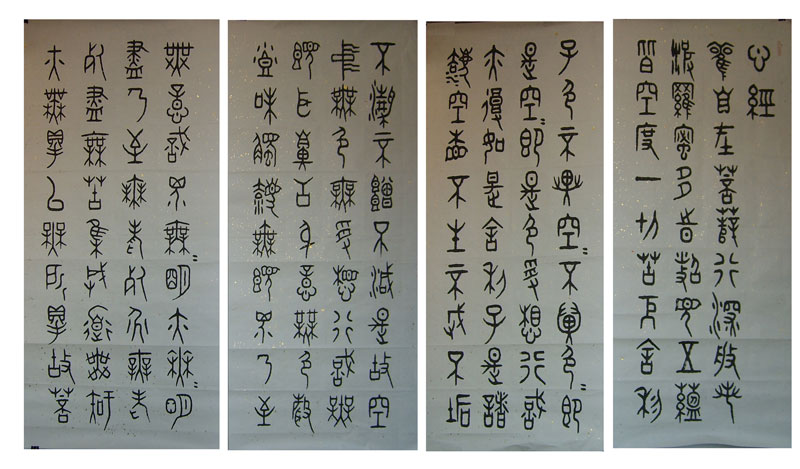 心經
觀自在菩薩行深般若
波羅蜜多時照見五蘊
皆空度一切苦厄舍利
子色不異空〻不異色〻即
是空〻即是色受想行識
亦復如是舍利子是諸
法空相不生不滅不垢
不淨不增不減是故空
中無色無受想行識無
眼耳鼻舌身意無色聲
香味觸法無眼界乃至
無意識界無〻明亦無〻明
盡乃至無老死亦無老
死盡無苦集滅道無智
亦無得以無所得故菩